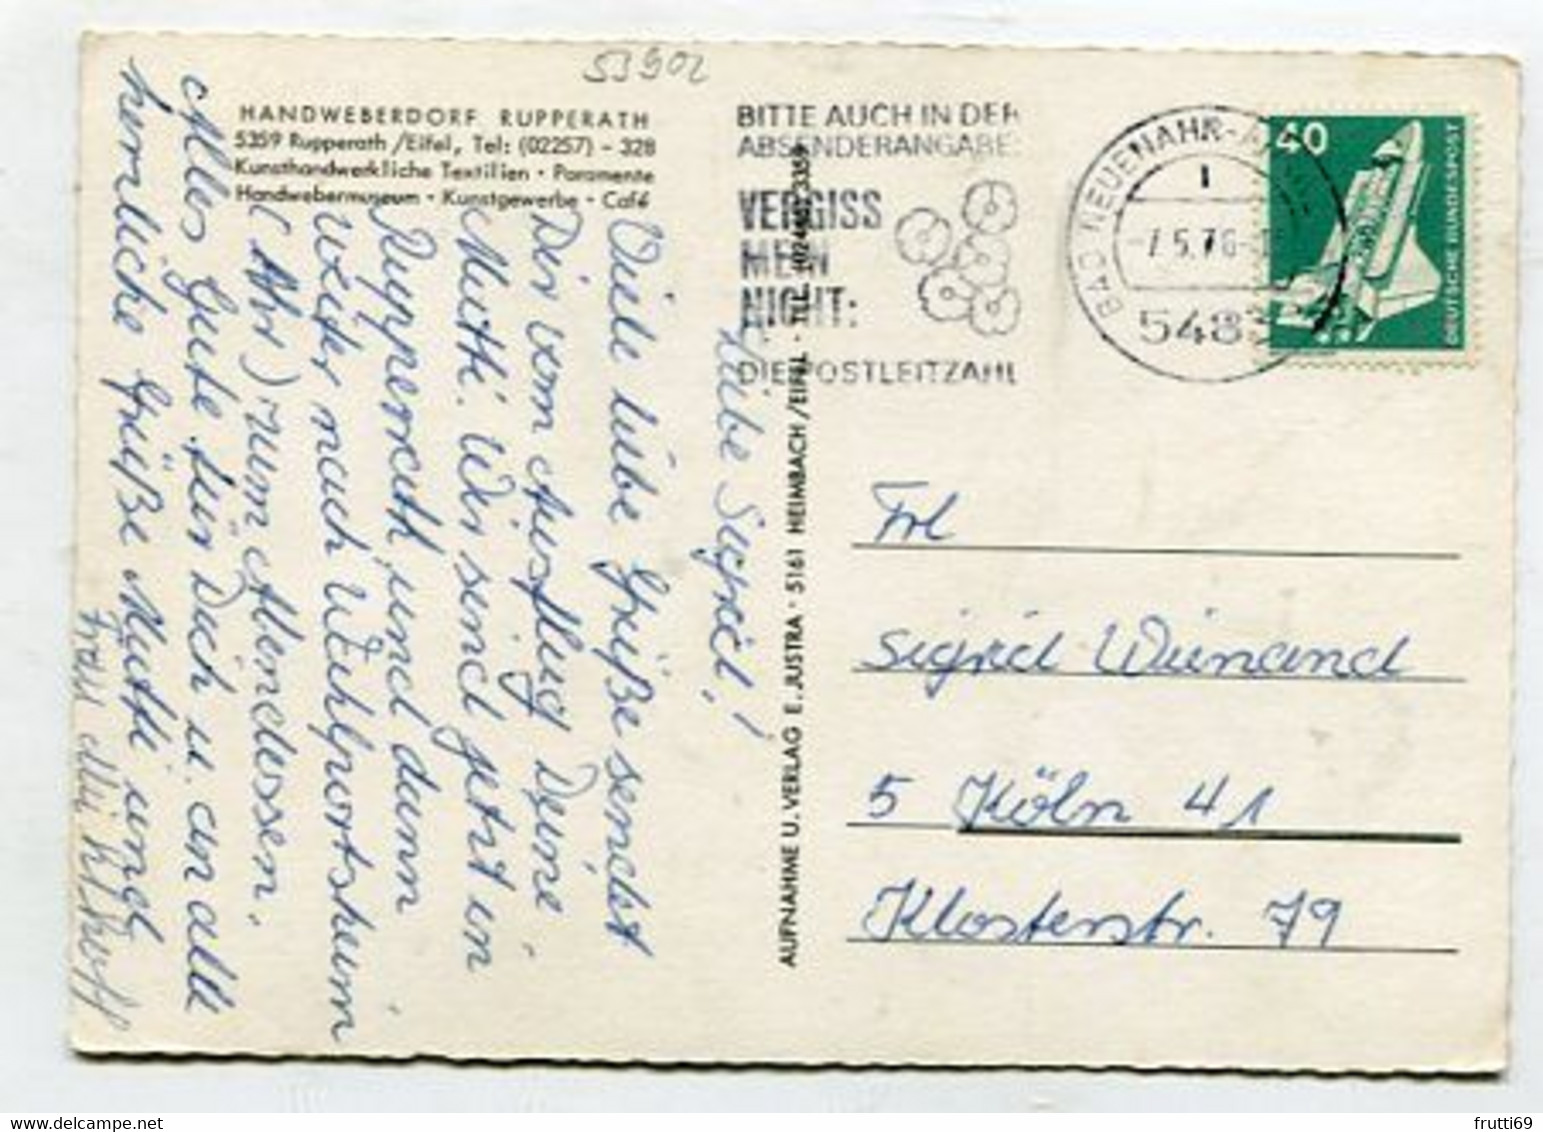 53902
HANDWEBERDORF RUPPERATH
5359 Rupperath /Eifel, Tel: (02257) - 328
Kunsthandwerkliche Textilien · Paramente
Handwebermuseum · Kunstgewerbe · Café
Liebe Sigrid!
Viele liebe Grüße sendet
Dir vom Ausflug Deine
Mutti. Wir sind jetzt in
Rupperath und dann
weiter nach Wehlportsheim
(Ahr) zum Abendessen.
Alles Gute für Dich u. an alle
herzliche Grüße Mutti und
Frau
AUFNAHME U. VERLAG E. JUSTRA · 5161 HEIMBACH /EIFEL · TEL.
BITTE AUCH IN DER
ABSENDERANGABE:
VERGISS
MEIN
NICHT:
DIE POSTLEITZAHL
BAD NEUENAHR-A
1
-7.5.76
5483
40
DEUTSCHE BUNDESPOST
Frl
Sigrid Weinand
5 Köln 41
Klosterstr. 79
frutti69